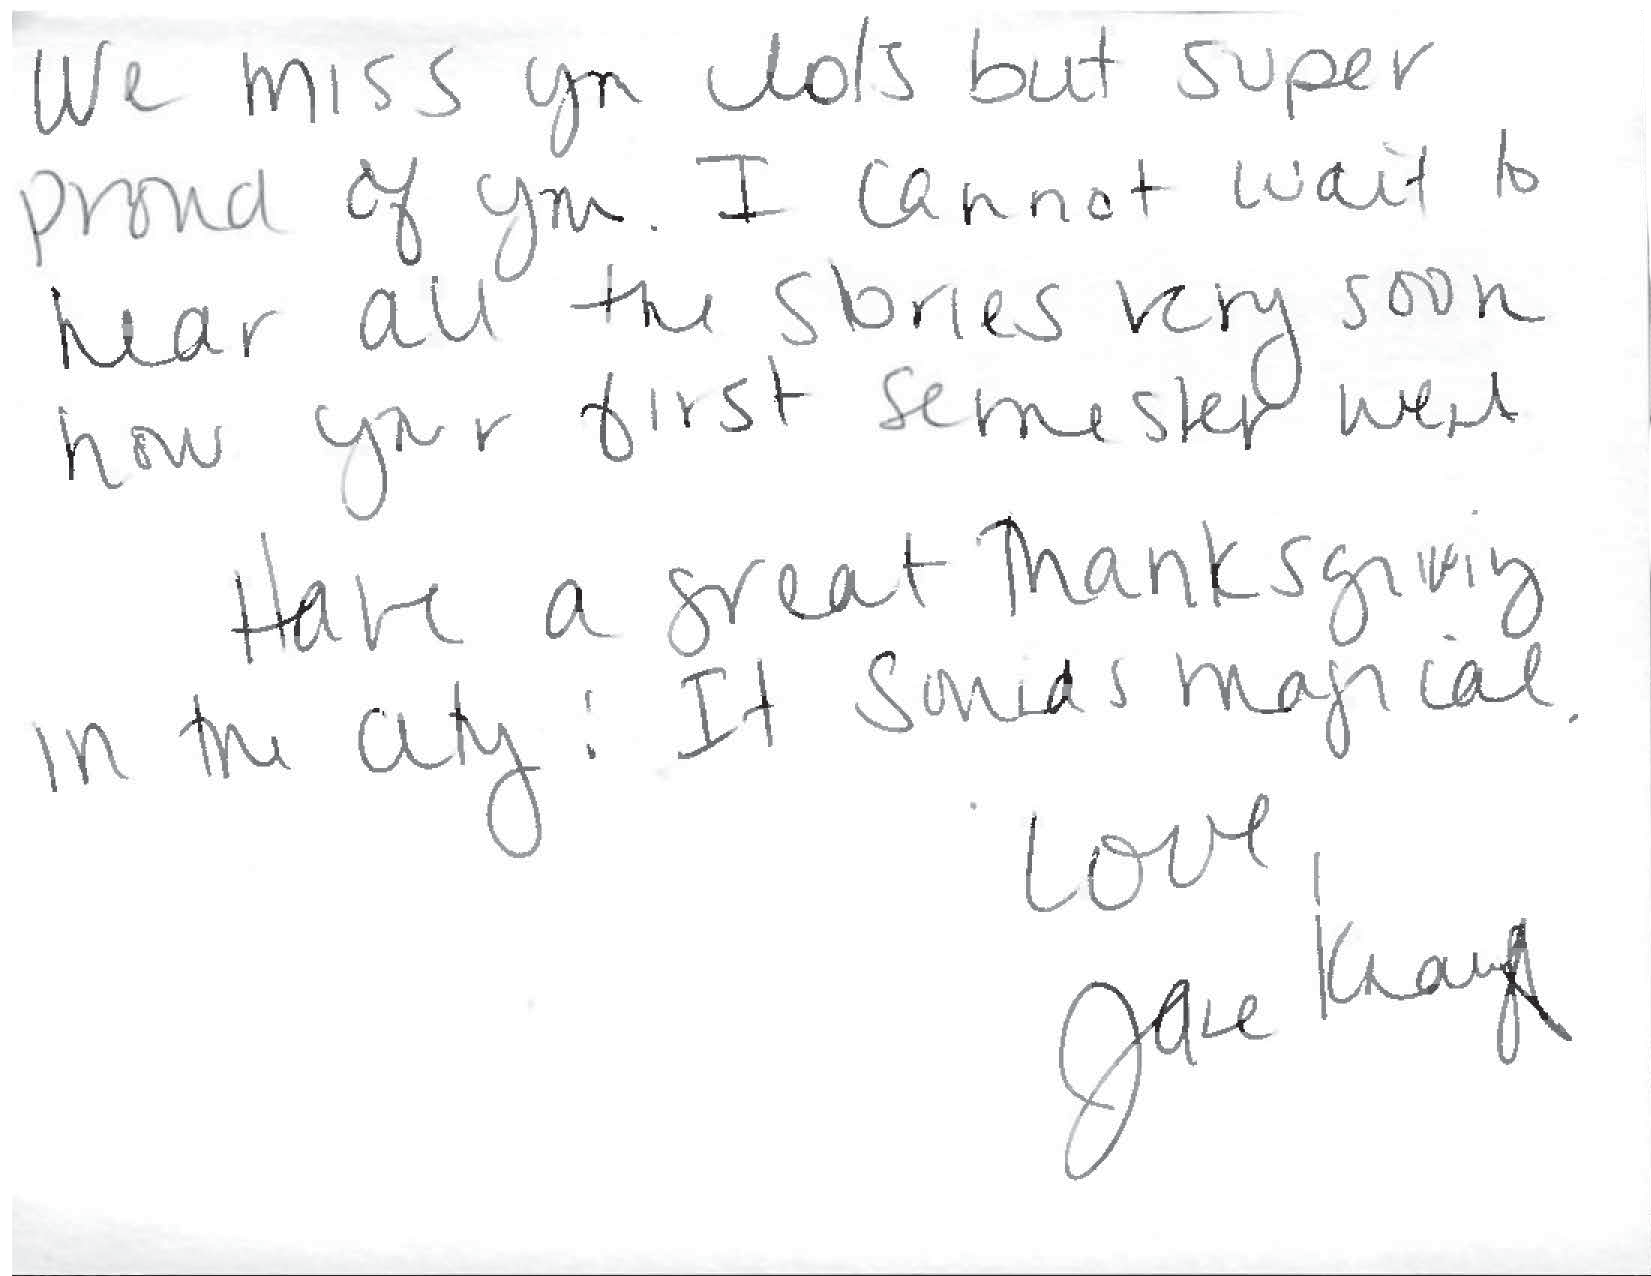 We miss you lots but super
proud of you. I cannot wait to
hear all the stories very soon
how your first semester went
Have a great Thanksgiving
in the city! It sounds magical.
Love,
Jane